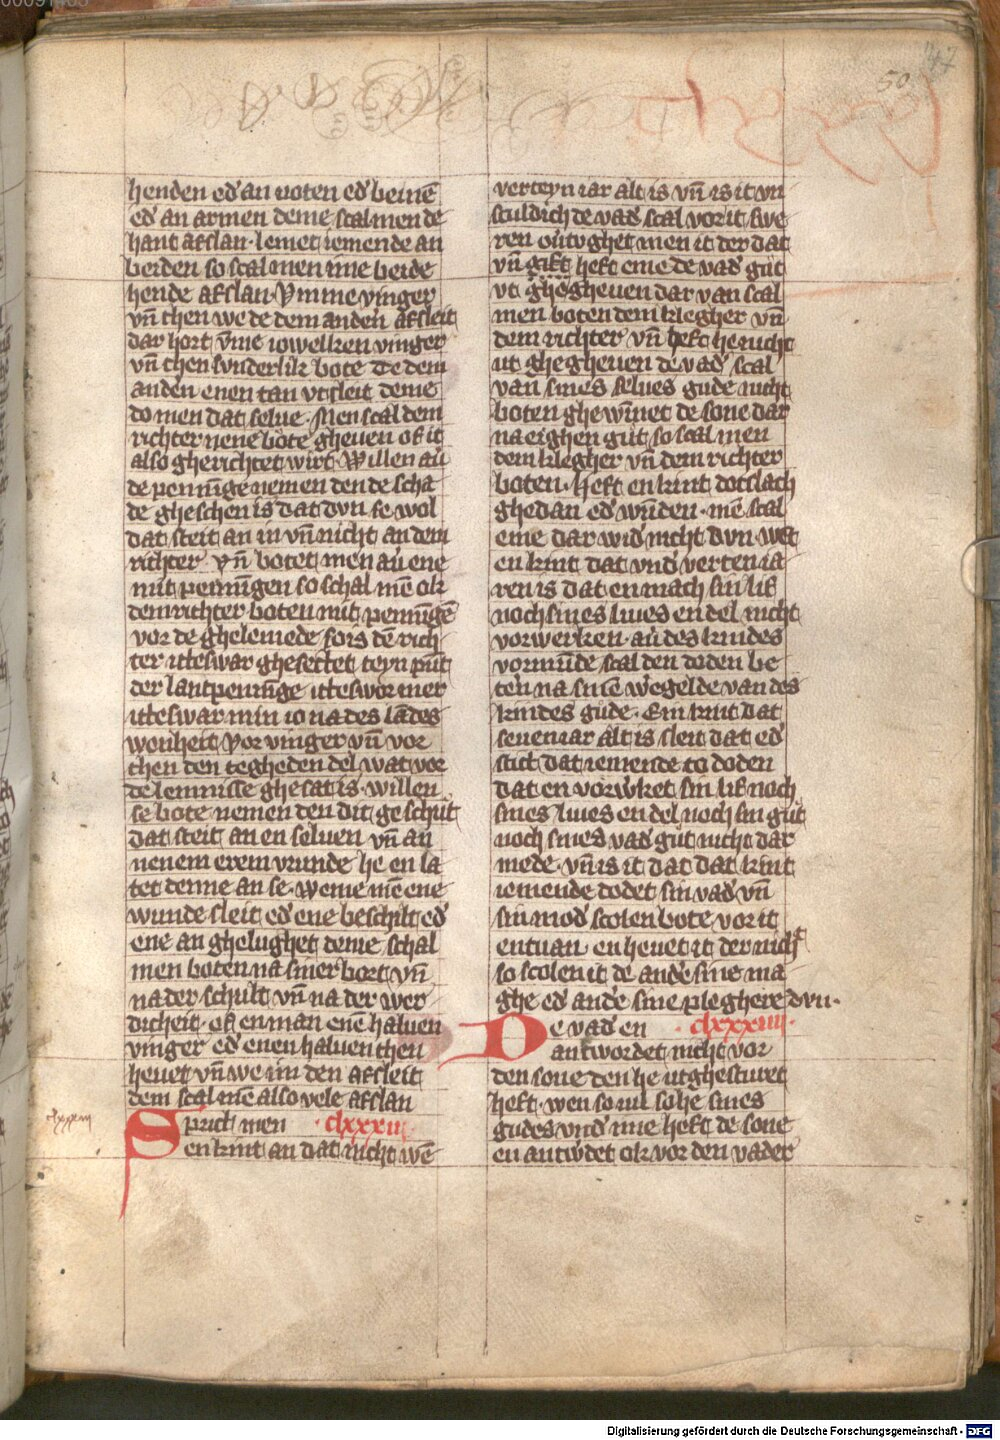 50
47
henden ed' an voten ed' beinē
ed' an armen deme scal men de
hant afslan · lemet iemende an
beiden so scal men ime beide
hende afslan · Vmme vinger
vn̄ then we de dem anden afsleit
dar hort vm̄e iowelken vinger
vn̄ then sunderlik bote De dem
anden enen tan vtsleit deme
do men dat selue · Men scal dem
richter nene bote gheuen of it
also gherichtet wirt · Willen au'
de pennīge nemen den de scha
de gheschen is dat dvn se wol
dat steit an in vn̄ nicht an dem
richter · vn̄ botet men au' ene
mit pennīgen so schal mē ok
dem richter boten mit pennīgē
vor de ghelemede fors dē rich
ter itteswar ghesettet teyn punt
der lantpennīge itteswor mer
itteswar min io na des lādes
wonheit Vor vinger vn̄ vor
then den tegheden del wat vor
de lemnisse ghesat is · willen
se bote nemen den dit geschut
dat steit an en seluen vn̄ an
nenem erem vrunde he en la
tet denne an se · weme mē ene
wunde sleit ed' ene beschilt ed'
ene an ghelughet deme schal
men boten na siner bort vn̄
na der schult vn̄ na der wer
dicheit · of en man enē haluen
vinger ed' enen haluen then
heuet vn̄ we im den afsleit
dem scal mē also vele afslan
Sprict men · clxxxiii ·
en kint an dat nicht wē
clxxxiii
verteyn iar alt is vn̄ is it vn
sculdich de vad' scal vor it swe
ren ou' tvghet men it der dat
vn̄ gift heft eme de vad' gut
vt ghegheuen dar van scal
men boten dem klegher vn̄
dem richter vn̄ heft he nicht
ut ghegheuen de vad' scal
van sines selues gude nicht
boten ghewinnet de sone dar
na eighen gut so scal men
dem klegher vn̄ dem richter
boten · heft en kint dotslach
ghedan ed' wūden · mē scal
eme dar wid' nicht dvn · wēt
en kint dat vnd' verten ia
ren is dat en mach sin lif
noch sines liues en del nicht
vorwerken · au' des kindes
vormūde scal den doden be
teren na sinē wegelde van des
kindes gude · Ein kint dat
seuen iar alt is sleit dat ed'
stict dat iemende to doden
dat en vorwrket sin lif noch
sines liues en del noch sin gut
noch sines vad' gut nicht dar
mede · vn̄ is it dat dat kint
iemende dodet sin vad' vn̄
sin mod' scolen bote vor it
entuan · en heuet it der nicht
so scolen it de and'e sine ma
ghe ed' and'e sine pleghere dvn ·
De vad' en · clxxxiiii ·
antwordet nicht vor
den sone den he utghesturet
heft · wen so iul so he sines
gudes vnd' ime heft de sone
en antw'det ok vor den vader
Digitalisierung gefördert durch die Deutsche Forschungsgemeinschaft - DFG